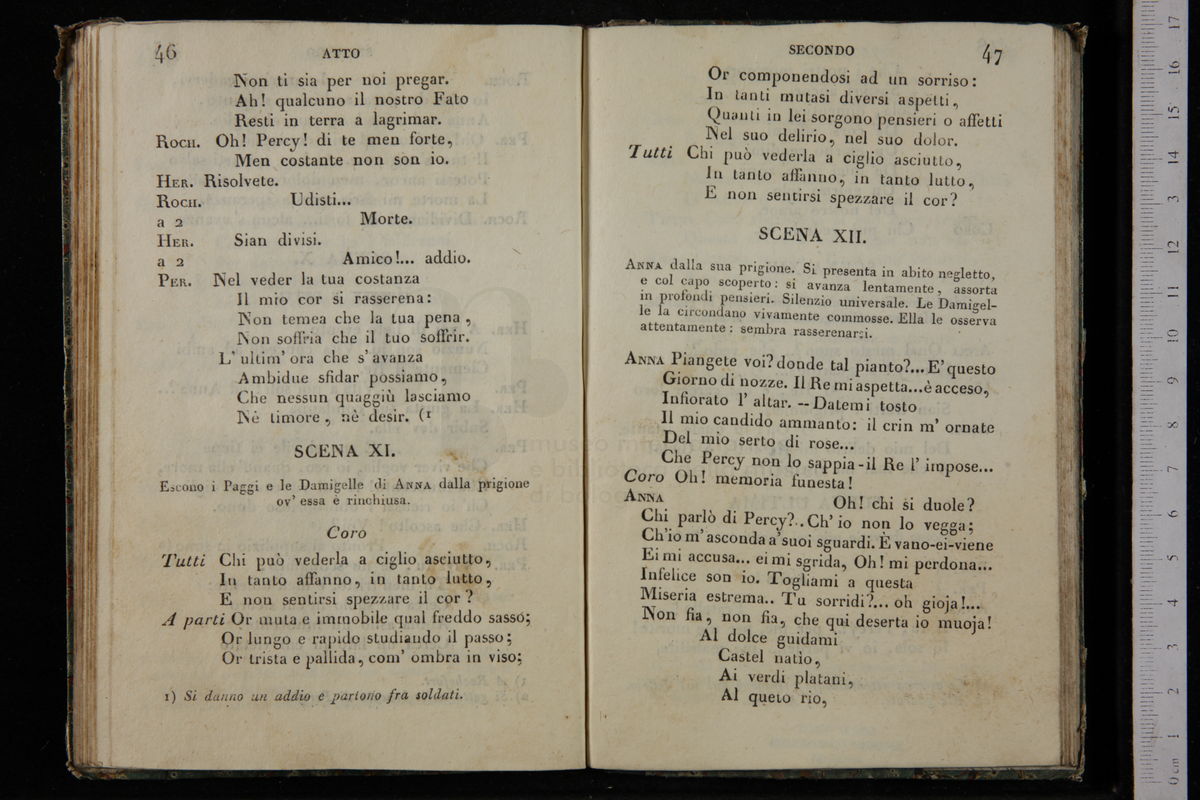 46
ATTO
Non ti sia per noi pregar.
Ah! qualcuno il nostro Fato
Resti in terra a lagrimar.
ROCH. Oh! Percy! di te men forte,
Men costante non son io.
HER. Risolvete.
ROCH. Udisti...
a 2 Morte.
HER. Sian divisi.
a 2 Amico!... addio.
PER. Nel veder la tua costanza
Il mio cor si rasserena:
Non temea che la tua pena,
Non soffria che il tuo soffrir.
L' ultim' ora che s' avanza
Ambidue sfidar possiamo,
Che nessun quaggiù lasciamo
Nè timore, nè desir. (1
SCENA XI.
Escono i Paggi e le Damigelle di ANNA dalla prigione
ov' essa è rinchiusa.
Coro
Tutti Chi può vederla a ciglio asciutto,
In tanto affanno, in tanto lutto,
E non sentirsi spezzare il cor?
A parti Or muta e immobile qual freddo sasso;
Or lungo e rapido studiando il passo;
Or trista e pallida, com' ombra in viso;
1) Si danno un addio e partono fra soldati.
SECONDO
47
Or componendosi ad un sorriso:
In tanti mutasi diversi aspetti,
Quanti in lei sorgono pensieri o affetti
Nel suo delirio, nel suo dolor.
Tutti Chi può vederla a ciglio asciutto,
In tanto affanno, in tanto lutto,
E non sentirsi spezzare il cor?
SCENA XII.
ANNA dalla sua prigione. Si presenta in abito negletto,
e col capo scoperto: si avanza lentamente, assorta
in profondi pensieri. Silenzio universale. Le Damigel-
le la circondano vivamente commosse. Ella le osserva
attentamente: sembra rasserenarsi.
ANNA Piangete voi? donde tal pianto?... E' questo
Giorno di nozze. Il Re mi aspetta... è acceso,
Infiorato l' altar. -- Datemi tosto
Il mio candido ammanto: il crin m' ornate
Del mio serto di rose...
Che Percy non lo sappia - il Re l' impose...
Coro Oh! memoria funesta!
ANNA Oh! chi si duole?
Chi parlò di Percy?.. Ch' io non lo vegga;
Ch'io m' asconda a' suoi sguardi. È vano-ei-viene
Ei mi accusa... ei mi sgrida, Oh! mi perdona...
Infelice son io. Togliami a questa
Miseria estrema.. Tu sorridi?... oh gioja!...
Non fia, non fia, che qui deserta io muoja!
Al dolce guidami
Castel natìo,
Ai verdi platani,
Al queto rio,